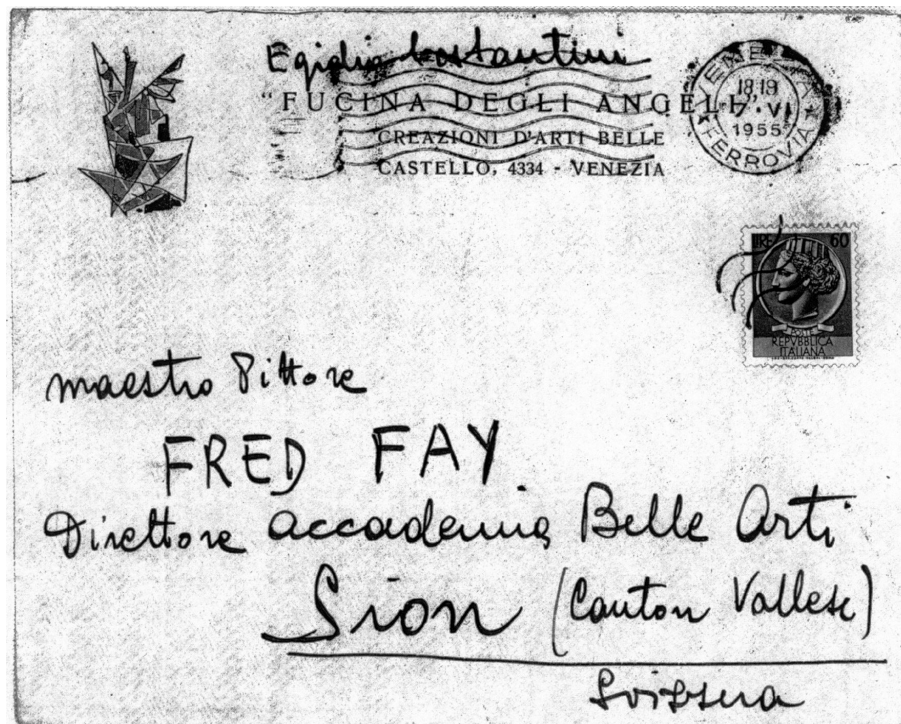 Egidio Costantini
"FUCINA DEGLI ANGELI"
CREAZIONI D'ARTI BELLE
CASTELLO, 4334 - VENEZIA
VENEZIA
18 19
7·VI
1955
FERROVIA
LIRE 60
POSTE
REPVBBLICA
ITALIANA
maestro Pittore
FRED FAY
Direttore accademia Belle Arti
Sion (Canton Vallese)
Svizzera